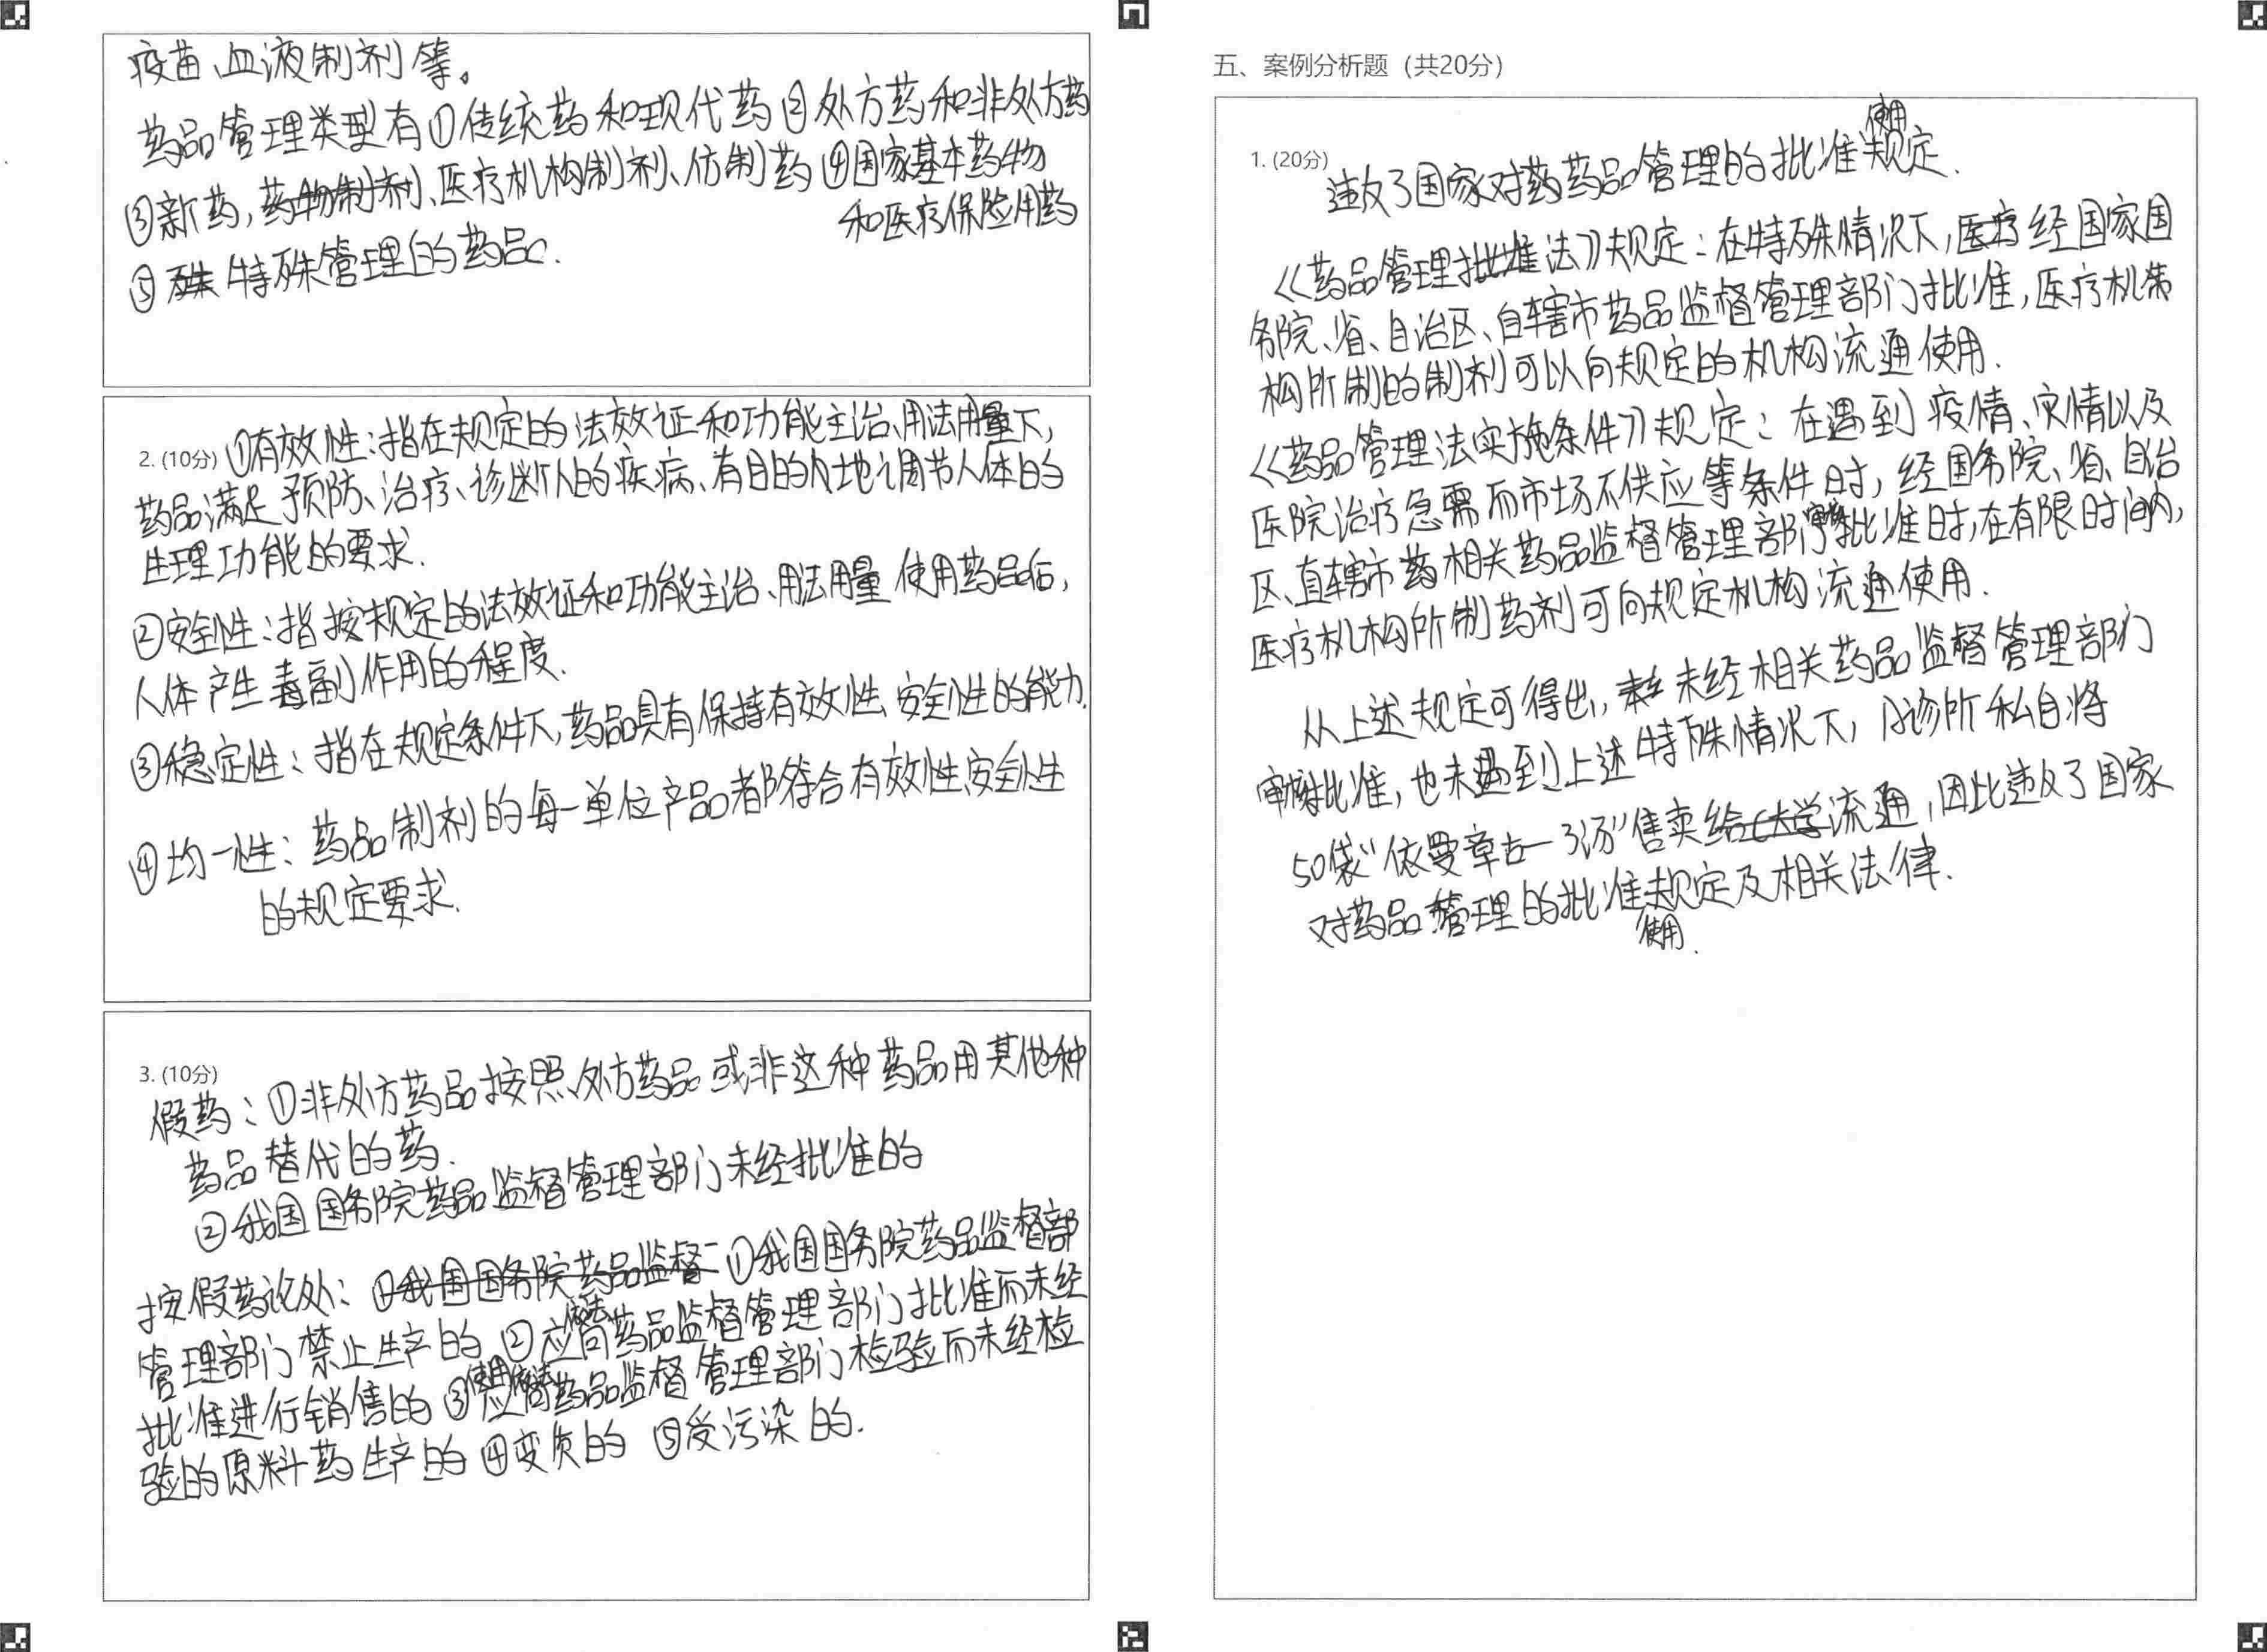 疫苗、血液制剂等。
药品管理类型有①传统药和现代药②处方药和非处方药
③新药,药物制剂、医疗机构制剂、仿制药④国家基本药物
和医疗保险用药
⑤殊特殊管理的药品.
2. (10分) ①有效性:指在规定的法效证和功能主治、用法用量下,
药品满足预防、治疗、诊断人的疾病、有目的地调节人体的
生理功能的要求.
②安全性:指按规定的法效证和功能主治、用法用量使用药品后,
人体产生毒副作用的程度.
③稳定性:指在规定条件下,药品具有保持有效性、安全性的能力.
④均一性:药品制剂的每一单位产品都符合有效性、安全性
的规定要求.
3. (10分)
假药:①非处方药品按照处方药品或非这种药品用其他种
药品替代的药.
②我国国务院药品监督管理部门未经批准的
按假药论处:①我国国务院药品监督 ①我国国务院药品监督部
管理部门禁止生产的 ②应向药品监督管理部门批准而未经
批准进行销售的 ③使用依法应向药品监督管理部门检验而未经检
验的原料药生产的 ④变质的 ⑤受污染的.
五、案例分析题(共20分)
使用
1. (20分) 违反了国家对药药品管理的批准规定.
《药品管理批准法》规定:在特殊情况下,医疗经国家国
务院、省、自治区、自辖市药品监督管理部门批准,医疗机
构所制的制剂可以向规定的机构流通使用.
《药品管理法实施条件》规定:在遇到疫情、灾情以及
医院治疗急需而市场不供应等条件时,经国务院、省、自治
区、直辖市药相关药品监督管理部门审核批准时,在有限时间内,
医疗机构所制药剂可向规定机构流通使用.
从上述规定可得出,未经相关药品监督管理部门
审核批准,也未遇到上述特殊情况下,诊所私自将
50袋“依曼章古—3汤”售卖给大学流通,因此违反了国家
对药品管理的批准规定及相关法律.
使用.